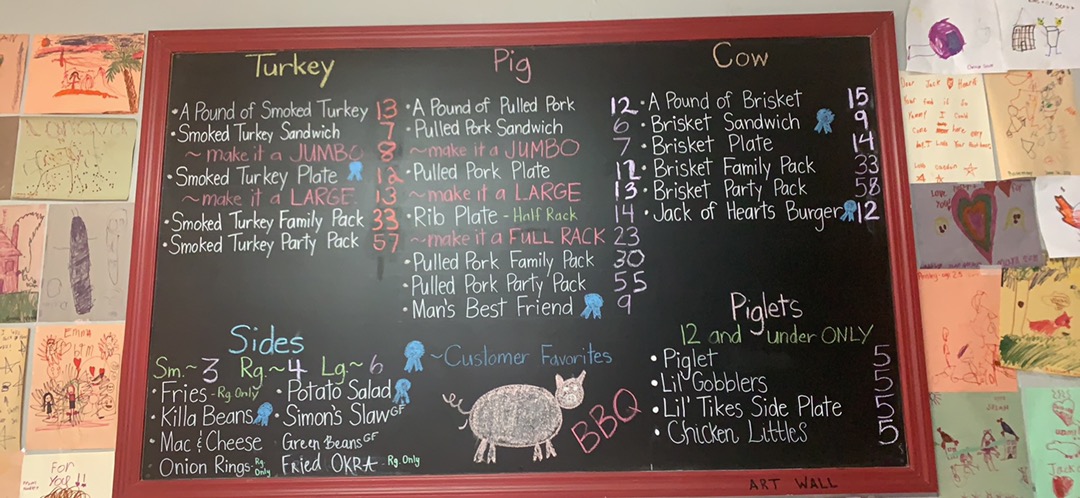 Turkey
• A Pound of Smoked Turkey 13
• Smoked Turkey Sandwich 7
~ make it a JUMBO 8
• Smoked Turkey Plate 12
~ make it a LARGE 13
• Smoked Turkey Family Pack 33
• Smoked Turkey Party Pack 57
Pig
• A Pound of Pulled Pork 12
• Pulled Pork Sandwich 6
~ make it a JUMBO 7
• Pulled Pork Plate 12
~ make it a LARGE 13
• Rib Plate - Half Rack 14
~ make it a FULL RACK 23
• Pulled Pork Family Pack 30
• Pulled Pork Party Pack 55
• Man's Best Friend 9
Cow
• A Pound of Brisket 15
• Brisket Sandwich 9
• Brisket Plate 14
• Brisket Family Pack 33
• Brisket Party Pack 58
• Jack of Hearts Burger 12
Sides
Sm.~3 Rg.~4 Lg~6
• Fries - Rg. Only • Potato Salad
• Killa Beans • Simon's Slaw GF
• Mac & Cheese Green Beans GF
Onion Rings - Rg. Only Fried OKRA - Rg. Only
~Customer Favorites
BBQ
Piglets
12 and under ONLY
• Piglet 5
• Lil' Gobblers 5
• Lil' Tikes Side Plate 5
• Chicken Littles 5
ART WALL
EMMA
FOR
YOU!!